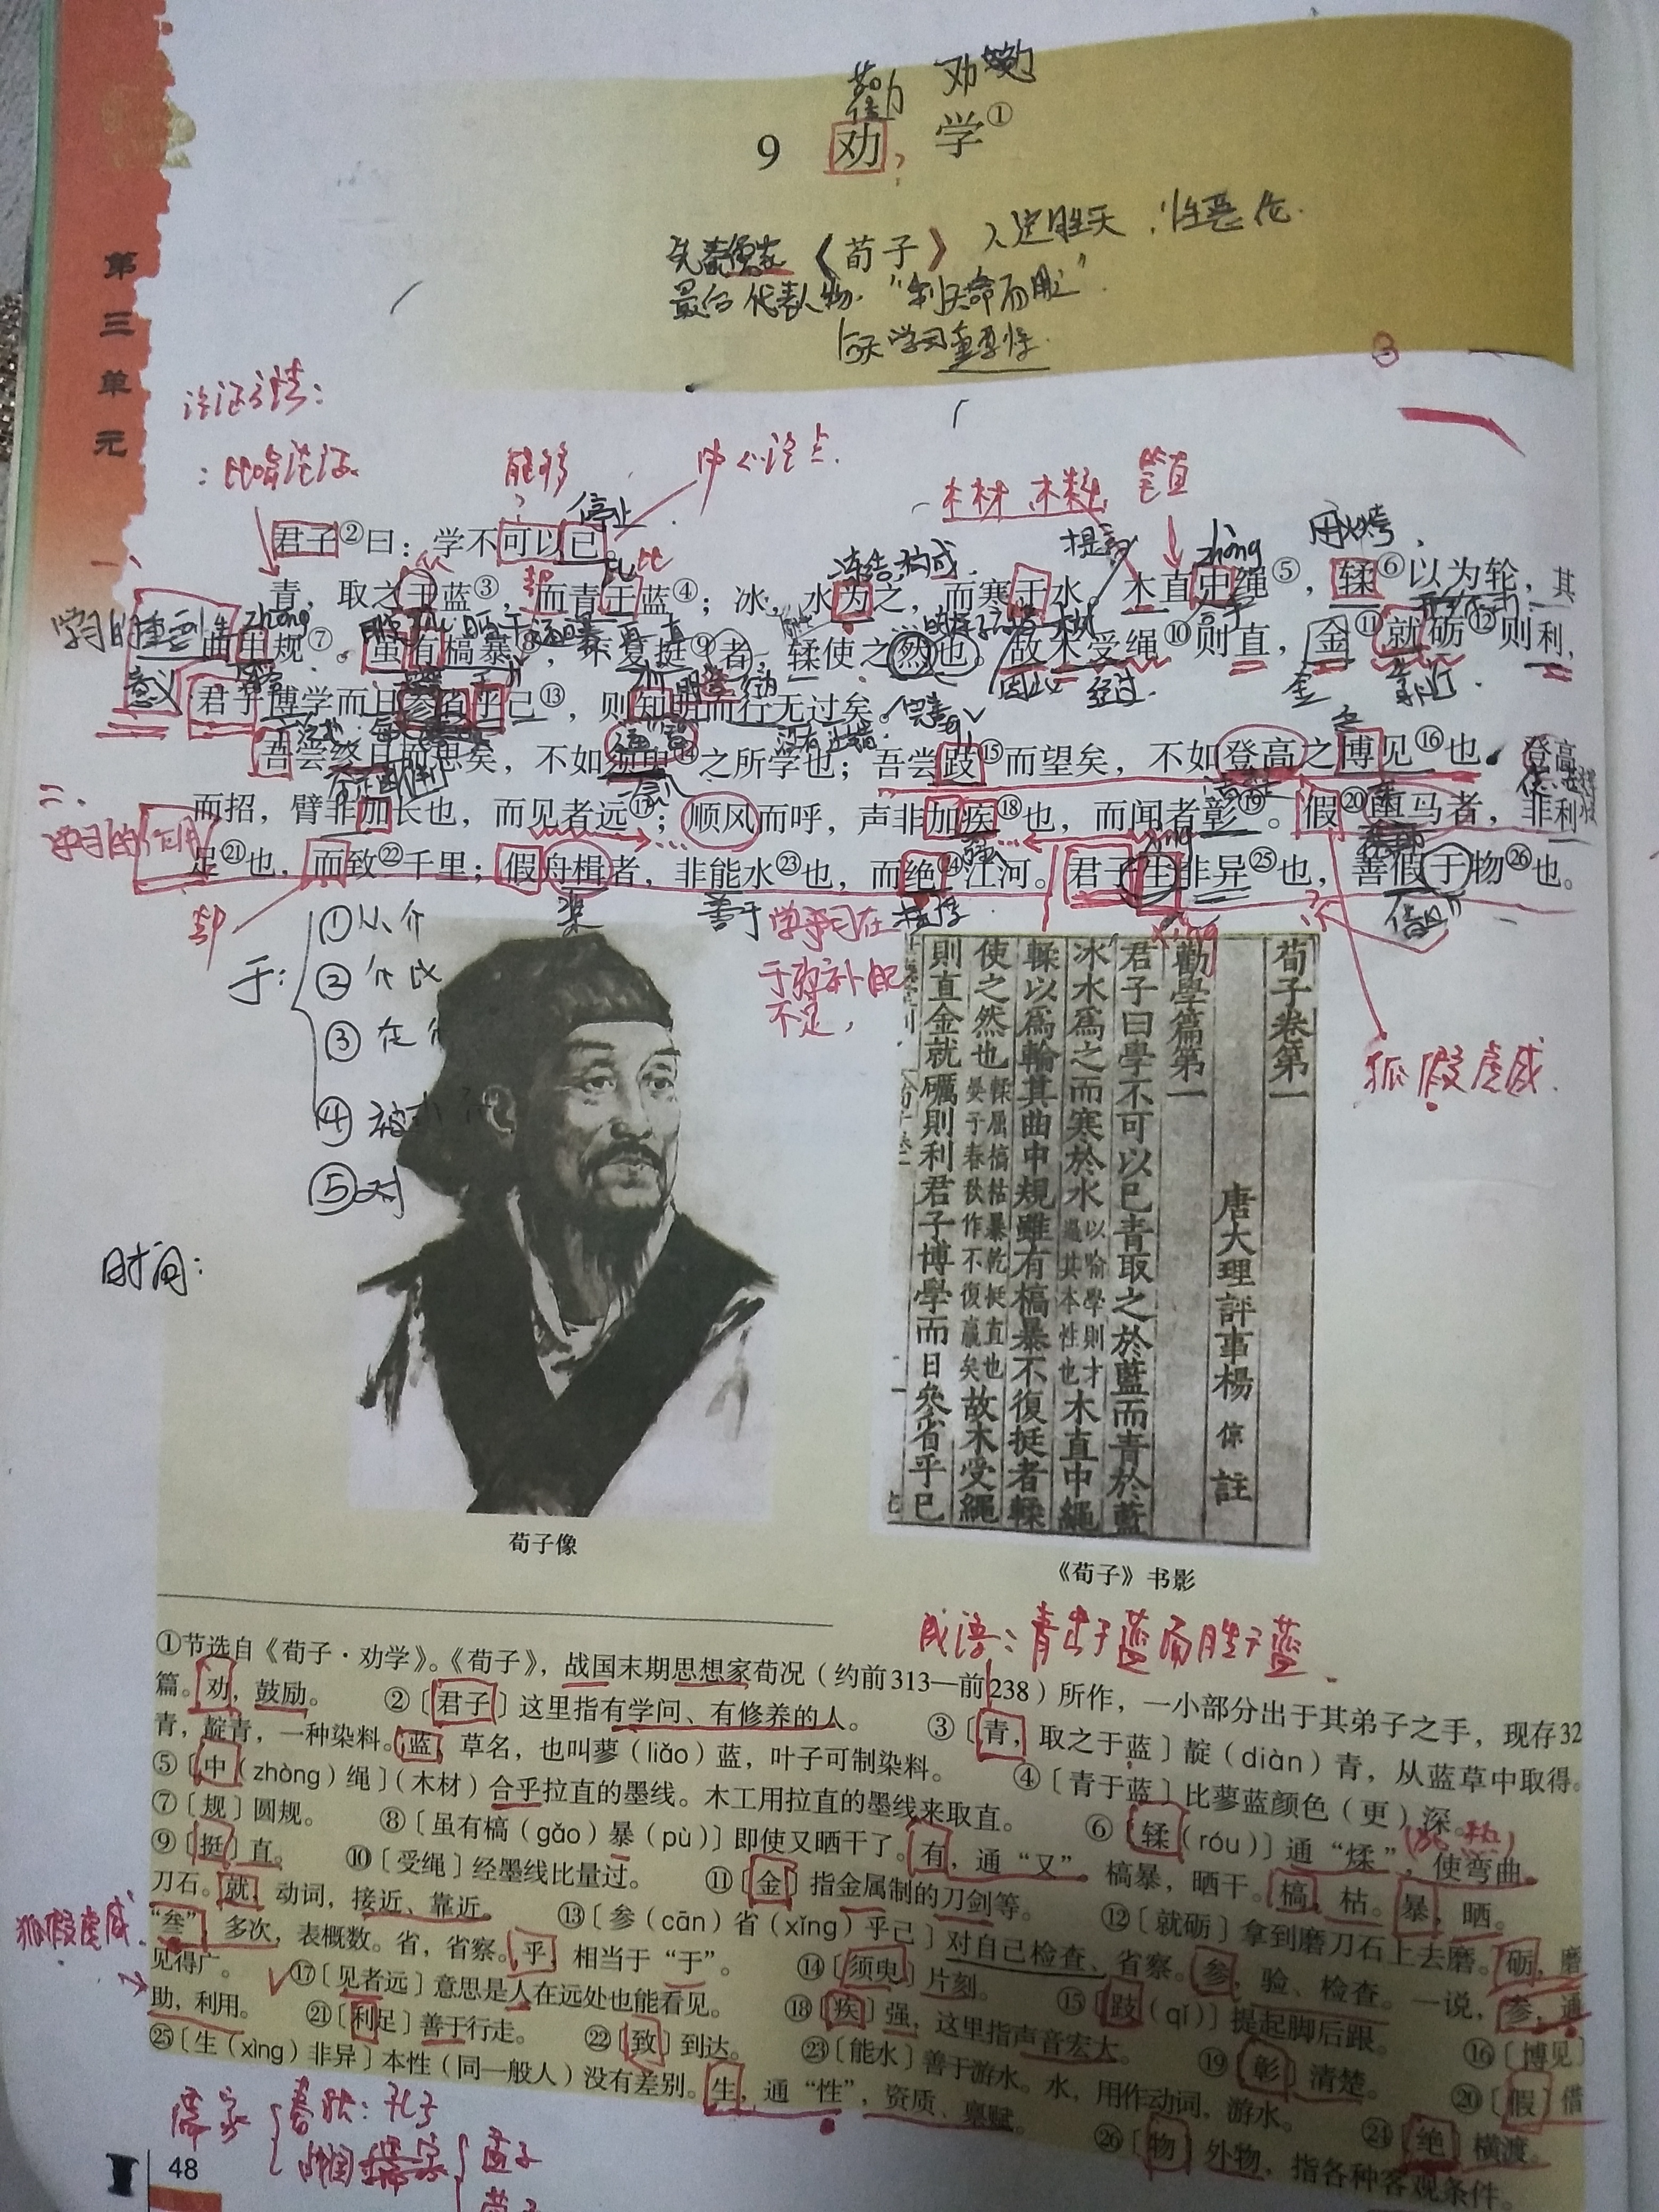 劝
9 劝 学①
《荀子》 人定胜天 性恶论.
最后代表人物. "制天命而用之".
第三单元
论证方法：
：比喻论证
能够
中心论点.
木材 木料
笔直
停止
用火烤
君子②曰：学不可以已。
zhòng
青，取之于蓝③，而青于蓝④；冰，水为之，而寒于水。木直中绳⑤，𫐓⑥以为轮，其
曲中规⑦。虽有槁暴⑧，不复挺⑨者，𫐓使之然也。故木受绳⑩则直，金⑪就砺⑫则利，
因此 经过.
意义
君子博学而日参省乎己⑬，则知明而行无过矣。
吾尝终日而思矣，不如须臾⑭之所学也；吾尝跂⑮而望矣，不如登高之博见⑯也。登高
二、
而招，臂非加长也，而见者远⑰；顺风而呼，声非加疾⑱也，而闻者彰⑲。假⑳舆马者，非利
学习的作用
足㉑也，而致㉒千里；假舟楫者，非能水㉓也，而绝㉔江河。君子生非异㉕也，善假于物㉖也。
却
桨
善于
学习在
于弥补
不足，
于：
①从 介
②介 比
③在
④被
⑤对
时间：
狐假虎威.
荀子卷第一
唐大理評事楊倞註
勸學篇第一
君子曰學不可以已青取之於藍而青於藍
冰水爲之而寒於水以喻學則才過其本性也木直中繩
輮以爲輪其曲中規雖有槁暴不復挺者輮
使之然也輮屈槁枯暴乾挺直也晏子春秋作不復嬴矣故木受繩
則直金就礪則利君子博學而日參省乎己
荀子像
《荀子》书影
成语：青出于蓝而胜于蓝
①节选自《荀子·劝学》。《荀子》，战国末期思想家荀况（约前313—前238）所作，一小部分出于其弟子之手，现存32
篇。劝，鼓励。 ②〔君子〕这里指有学问、有修养的人。 ③〔青，取之于蓝〕靛（diàn）青，从蓝草中取得。
青，靛青，一种染料。蓝，草名，也叫蓼（liǎo）蓝，叶子可制染料。 ④〔青于蓝〕比蓼蓝颜色（更）深。
⑤〔中（zhòng）绳〕（木材）合乎拉直的墨线。木工用拉直的墨线来取直。 ⑥〔𫐓（róu）〕通“煣”，使弯曲。
⑦〔规〕圆规。 ⑧〔虽有槁（gǎo）暴（pù）〕即使又晒干了。有，通“又”。槁暴，晒干。槁，枯。暴，晒。
⑨〔挺〕直。 ⑩〔受绳〕经墨线比量过。 ⑪〔金〕指金属制的刀剑等。 ⑫〔就砺〕拿到磨刀石上去磨。砺，磨
刀石。就，动词，接近、靠近。 ⑬〔参（cān）省（xǐng）乎己〕对自己检查、省察。参，验、检查。一说，参，通
“叁”，多次，表概数。省，省察。乎，相当于“于”。 ⑭〔须臾〕片刻。 ⑮〔跂（qǐ）〕提起脚后跟。 ⑯〔博见〕
见得广。 ⑰〔见者远〕意思是人在远处也能看见。 ⑱〔疾〕强，这里指声音宏大。 ⑲〔彰〕清楚。 ⑳〔假〕借
助，利用。 ㉑〔利足〕善于行走。 ㉒〔致〕到达。 ㉓〔能水〕善于游水。水，用作动词，游水。 ㉔〔绝〕横渡。
㉕〔生（xìng）非异〕本性（同一般人）没有差别。生，通“性”，资质、禀赋。 ㉖〔物〕外物，指各种客观条件。
狐假虎威.
儒家
春秋：孔子
战国
孟子
48